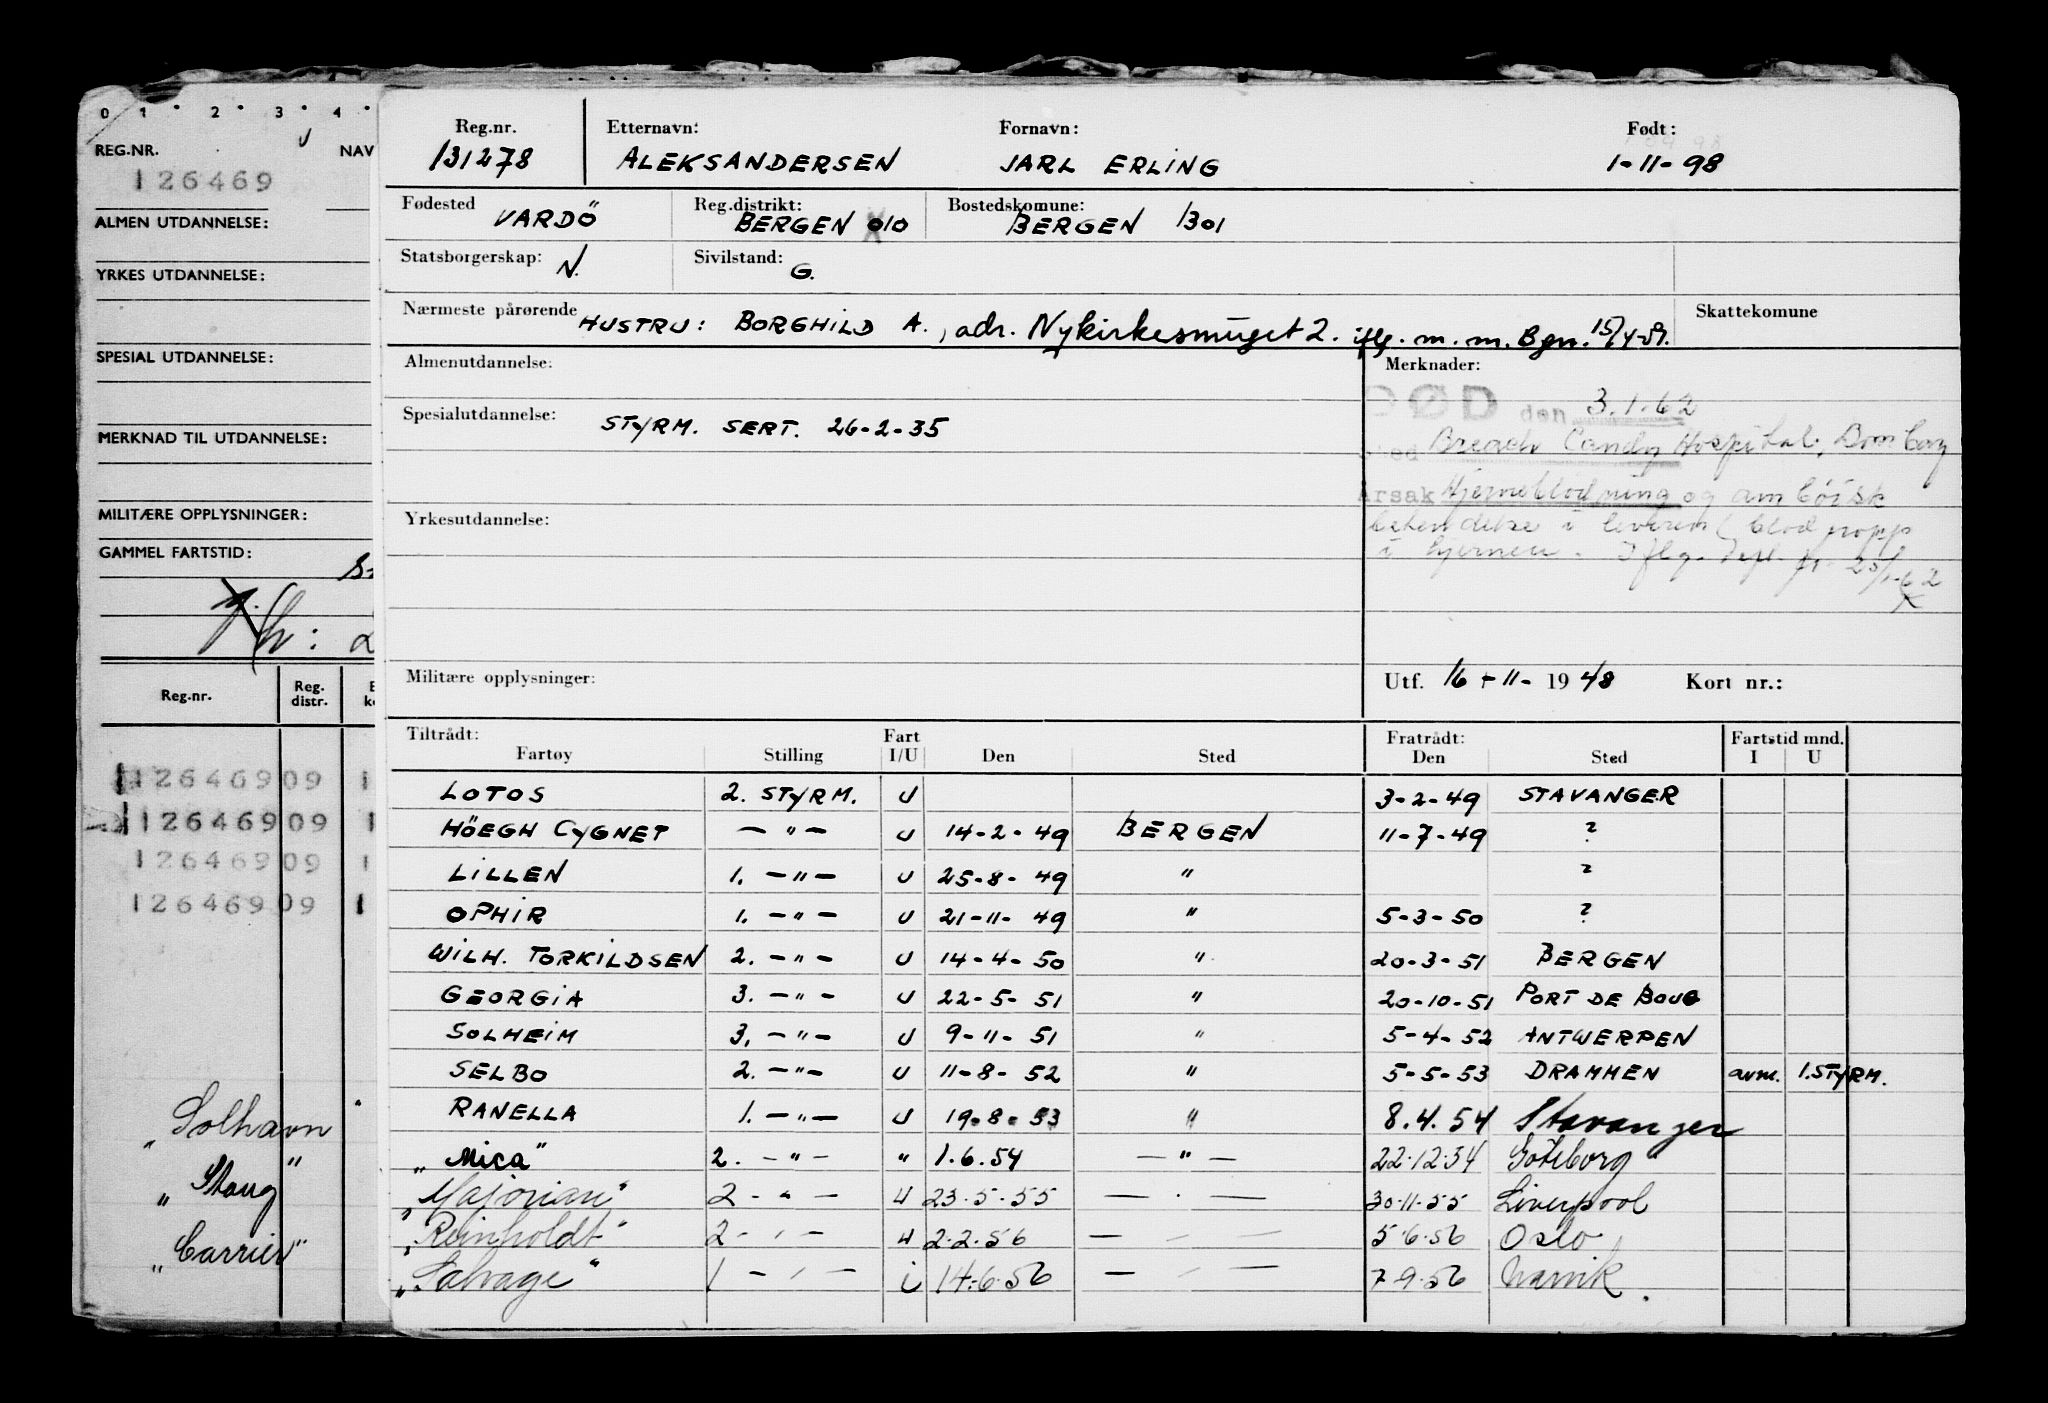 0 1 2 3 4
REG.NR. NAV
126469
ALMEN UTDANNELSE:
YRKES UTDANNELSE:
SPESIAL UTDANNELSE:
MERKNAD TIL UTDANNELSE:
MILITÆRE OPPLYSNINGER:
GAMMEL FARTSTID:
Reg.nr. Reg. distr.
126469 09 1
126469 09 1
126469 09 1
126469 09 1
"Solhavn
"Stang"
"Carrier"
Reg.nr. Etternavn: Fornavn: Født:
131278 ALEKSANDERSEN JARL ERLING 1-11-98
Fødested VARDÖ Reg.distrikt: BERGEN 010 Bostedskomune: BERGEN 1301
Statsborgerskap: N. Sivilstand: G.
Nærmeste pårørende HUSTRU: BORGHILD A., adr. Nykirkesmuget 2. iflg. m.m. Bgn. 15/4-51. Skattekomune
Almenutdannelse: Merknader:
DØD den 3.1.62
Spesialutdannelse: STYRM. SERT. 26-2-35
sted Breach Candy Hospital, Bombay
Årsak Hjerneblødning og amböisk
Yrkesutdannelse: betendelse i leveren (blodpropp
i hjernen. Iflg. 25/1-62
Militære opplysninger: Utf. 16-11-1948 Kort nr.:
Tiltrådt: Fart Fratrådt: Fartstid mnd.
Fartøy Stilling I/U Den Sted Den Sted I U
LOTOS 2. STYRM. U 3-2-49 STAVANGER
HÖEGH CYGNET — " — U 14-2-49 BERGEN 11-7-49 ?
LILLEN 1. — " — U 25-8-49 " ?
OPHIR 1. — " — U 21-11-49 " 5-3-50 ?
WILH. TORKILDSEN 2. — " — U 14-4-50 " 20-3-51 BERGEN
GEORGIA 3. — " — U 22-5-51 " 20-10-51 PORT DE BOUC
SOLHEIM 3. — " — U 9-11-51 " 5-4-52 ANTWERPEN
SELBO 2. — " — U 11-8-52 " 5-5-53 DRAMMEN avm. 1.STYRM.
RANELLA 1. — " — U 19-8-53 " 8.4.54 Stavanger
"Mica" 2. — " — " 1.6.54 — " — 22.12.54 Göteborg
"Majorian" 2 - " — U 23.5.55 — . — 30.11.55 Liverpool
"Reinholdt" 2 - ' — U 2.2.56 — ' — 5.6.56 Oslo
"Salvage" 1 — ' — i 14.6.56 — ' — 7.9.56 Narvik.